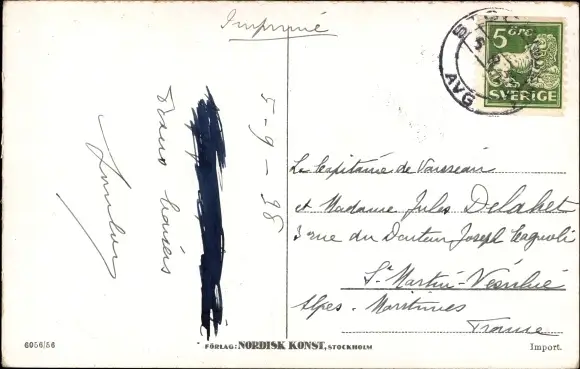 Imprimé
5 ÖRE
SVERIGE
AVG.
5-9-38
Le Capitaine de Vaisseau
et Madame Jules Delahet
3 rue du Docteur Joseph Cagnoli
St Martin-Vésubie
Alpes-Maritimes
France
6056/56
FÖRLAG: NORDISK KONST, STOCKHOLM
Import.